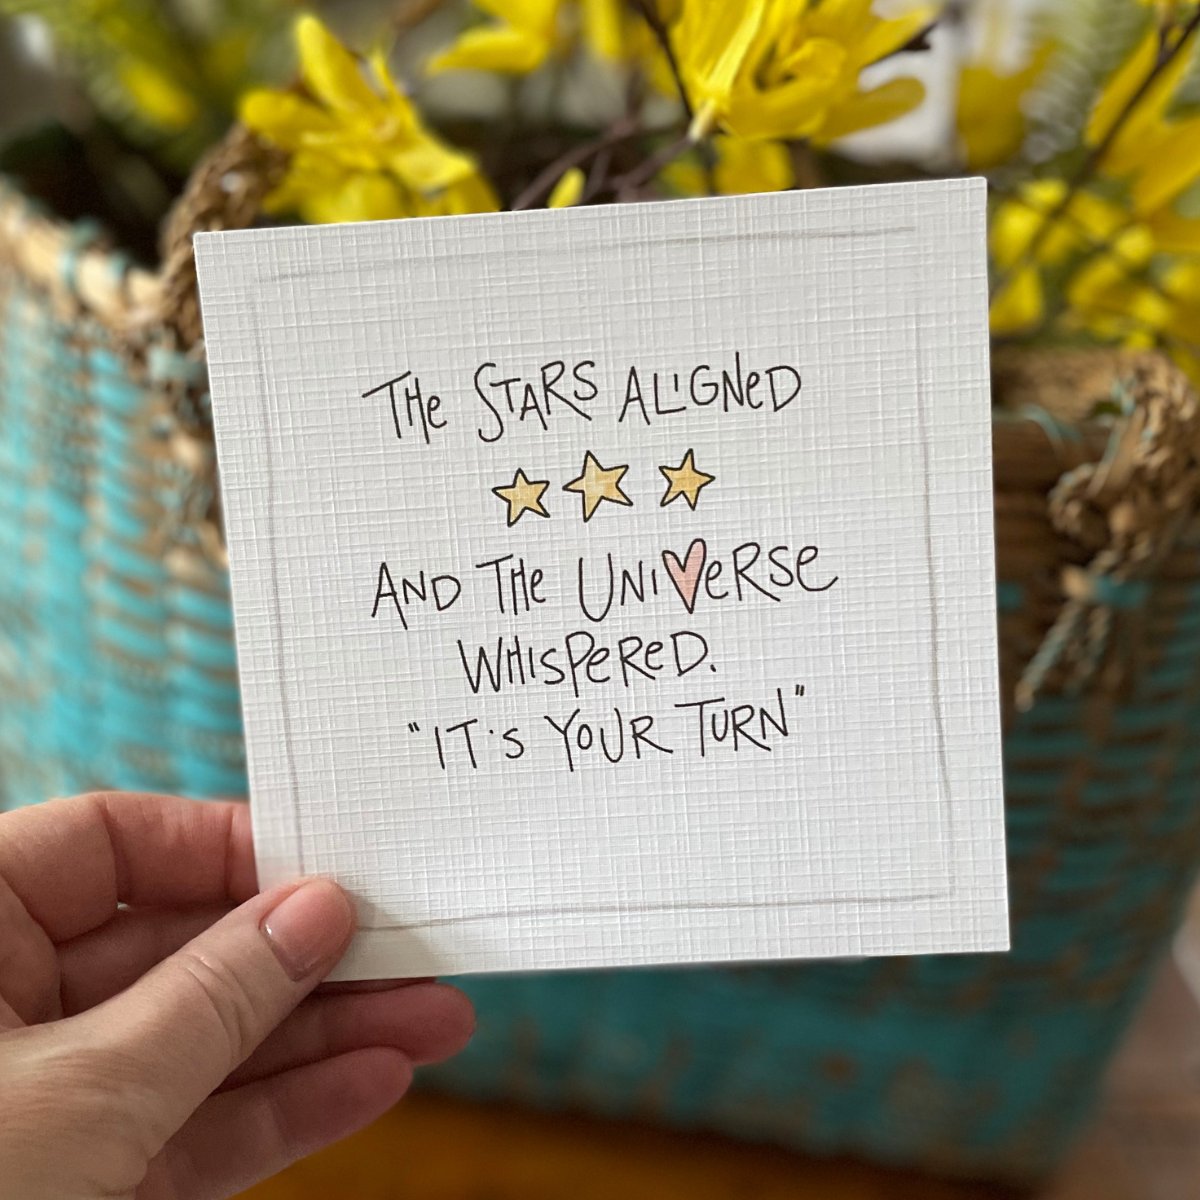 THE STARS ALIGNED
AND THE UNIVERSE
WHISPERED.
"IT'S YOUR TURN"